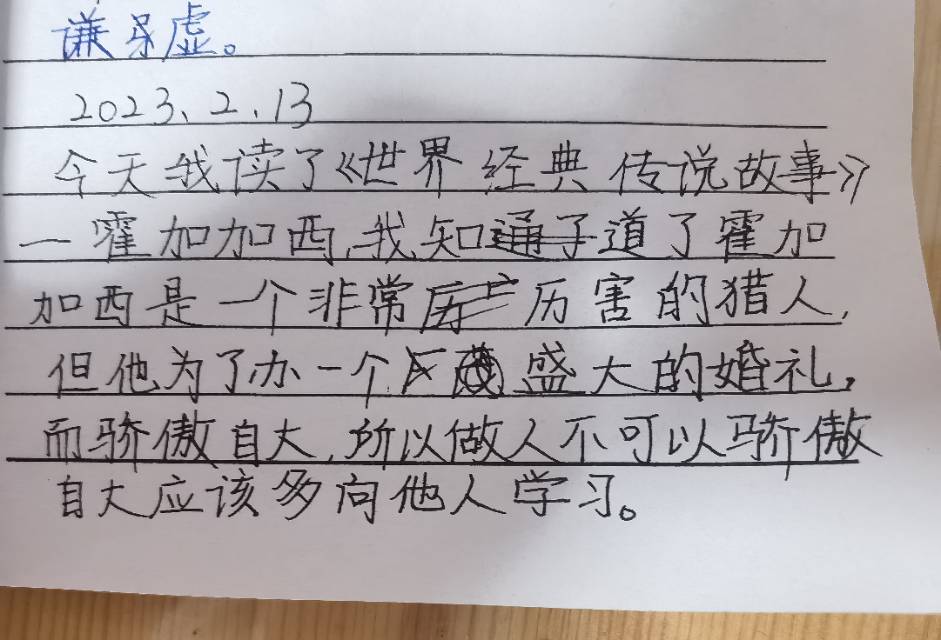 谦虚。
2023、2、13
今天我读了《世界经典传说故事》
一霍加加西,我知道了霍加
加西是一个非常厉害的猎人,
但他为了办一个盛大的婚礼,
而骄傲自大,所以做人不可以骄傲
自大应该多向他人学习。